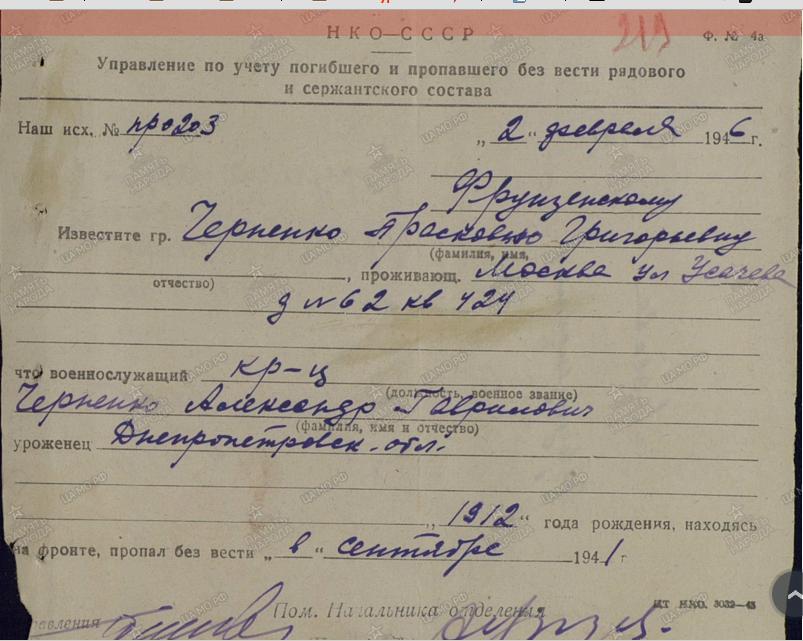 НКО–СССР
213 Ф. № 4а
Управление по учету погибшего и пропавшего без вести рядового
и сержантского состава
Наш исх. № про203 „2“ февраля 1946 г.
Фрунзенскому
Известите гр. Черненко Прасковью Григорьевну
(фамилия, имя,
отчество) , проживающ. Москва ул Усачева
д № 62 кв 424
что военнослужащий кр-ц
(должность, военное звание)
Черненко Александр Гаврилович
(фамилия, имя и отчество)
уроженец Днепропетровск. обл.
„1912“ года рождения, находясь
на фронте, пропал без вести „в“ сентябре 1941 г
Пом. Начальника отделения
равления